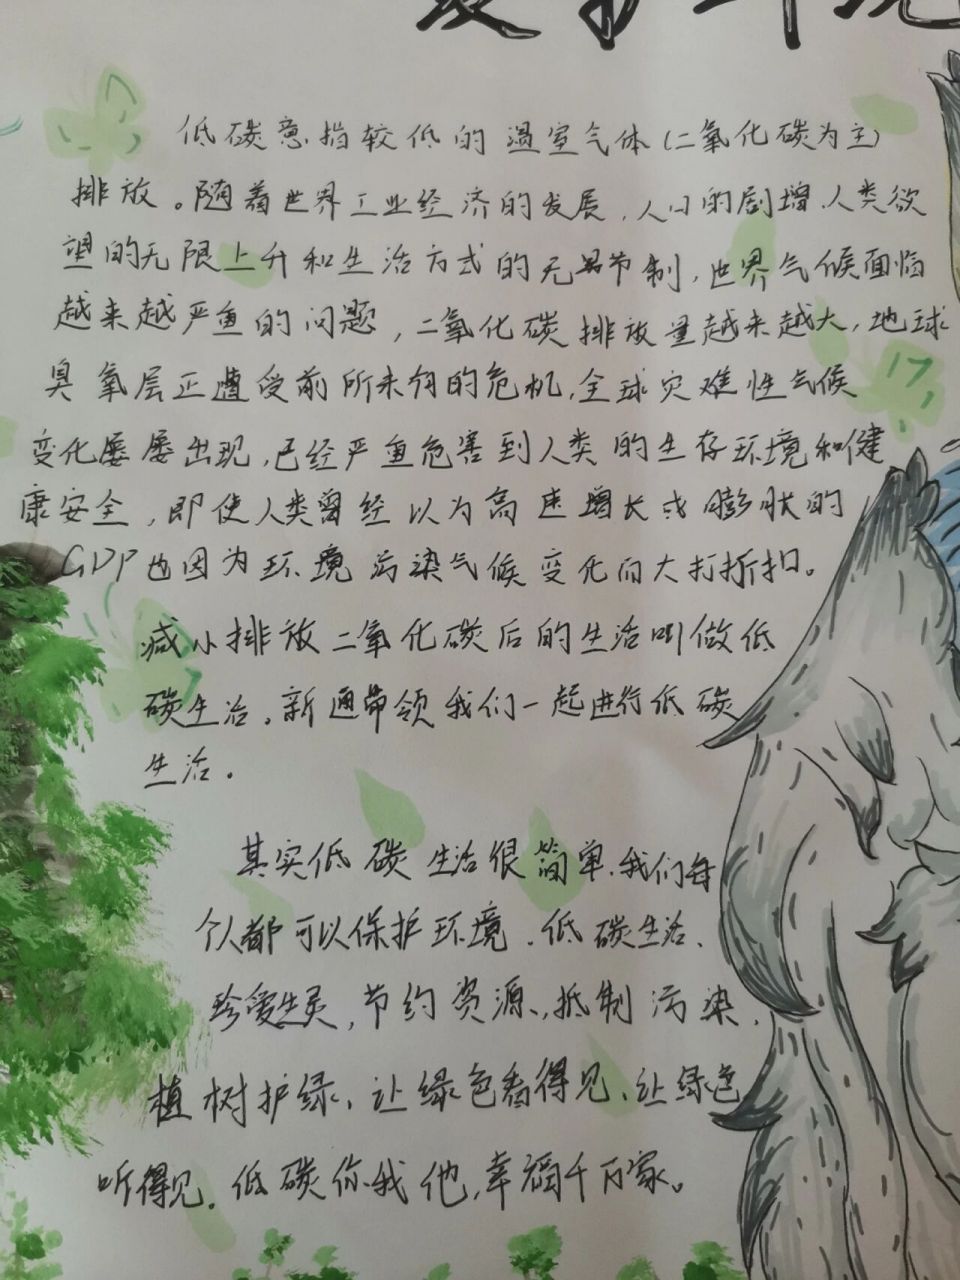 爱护环境
低碳意指较低的温室气体(二氧化碳为主)
排放。随着世界工业经济的发展,人口的剧增、人类欲
望的无限上升和生活方式的无节制,世界气候面临
越来越严重的问题,二氧化碳排放量越来越大,地球
臭氧层正遭受前所未有的危机,全球灾难性气候
变化屡屡出现,已经严重危害到人类的生存环境和健
康安全,即使人类曾经以为高速增长或膨胀的
GDP也因为环境污染气候变化而大打折扣。
减小排放二氧化碳后的生活叫做低
碳生活。新通带领我们一起进行低碳
生活。
其实低碳生活很简单,我们每
个人都可以保护环境、低碳生活、
珍爱生灵,节约资源,抵制污染,
植树护绿、让绿色看得见、让绿色
听得见。低碳你我他,幸福千万家。